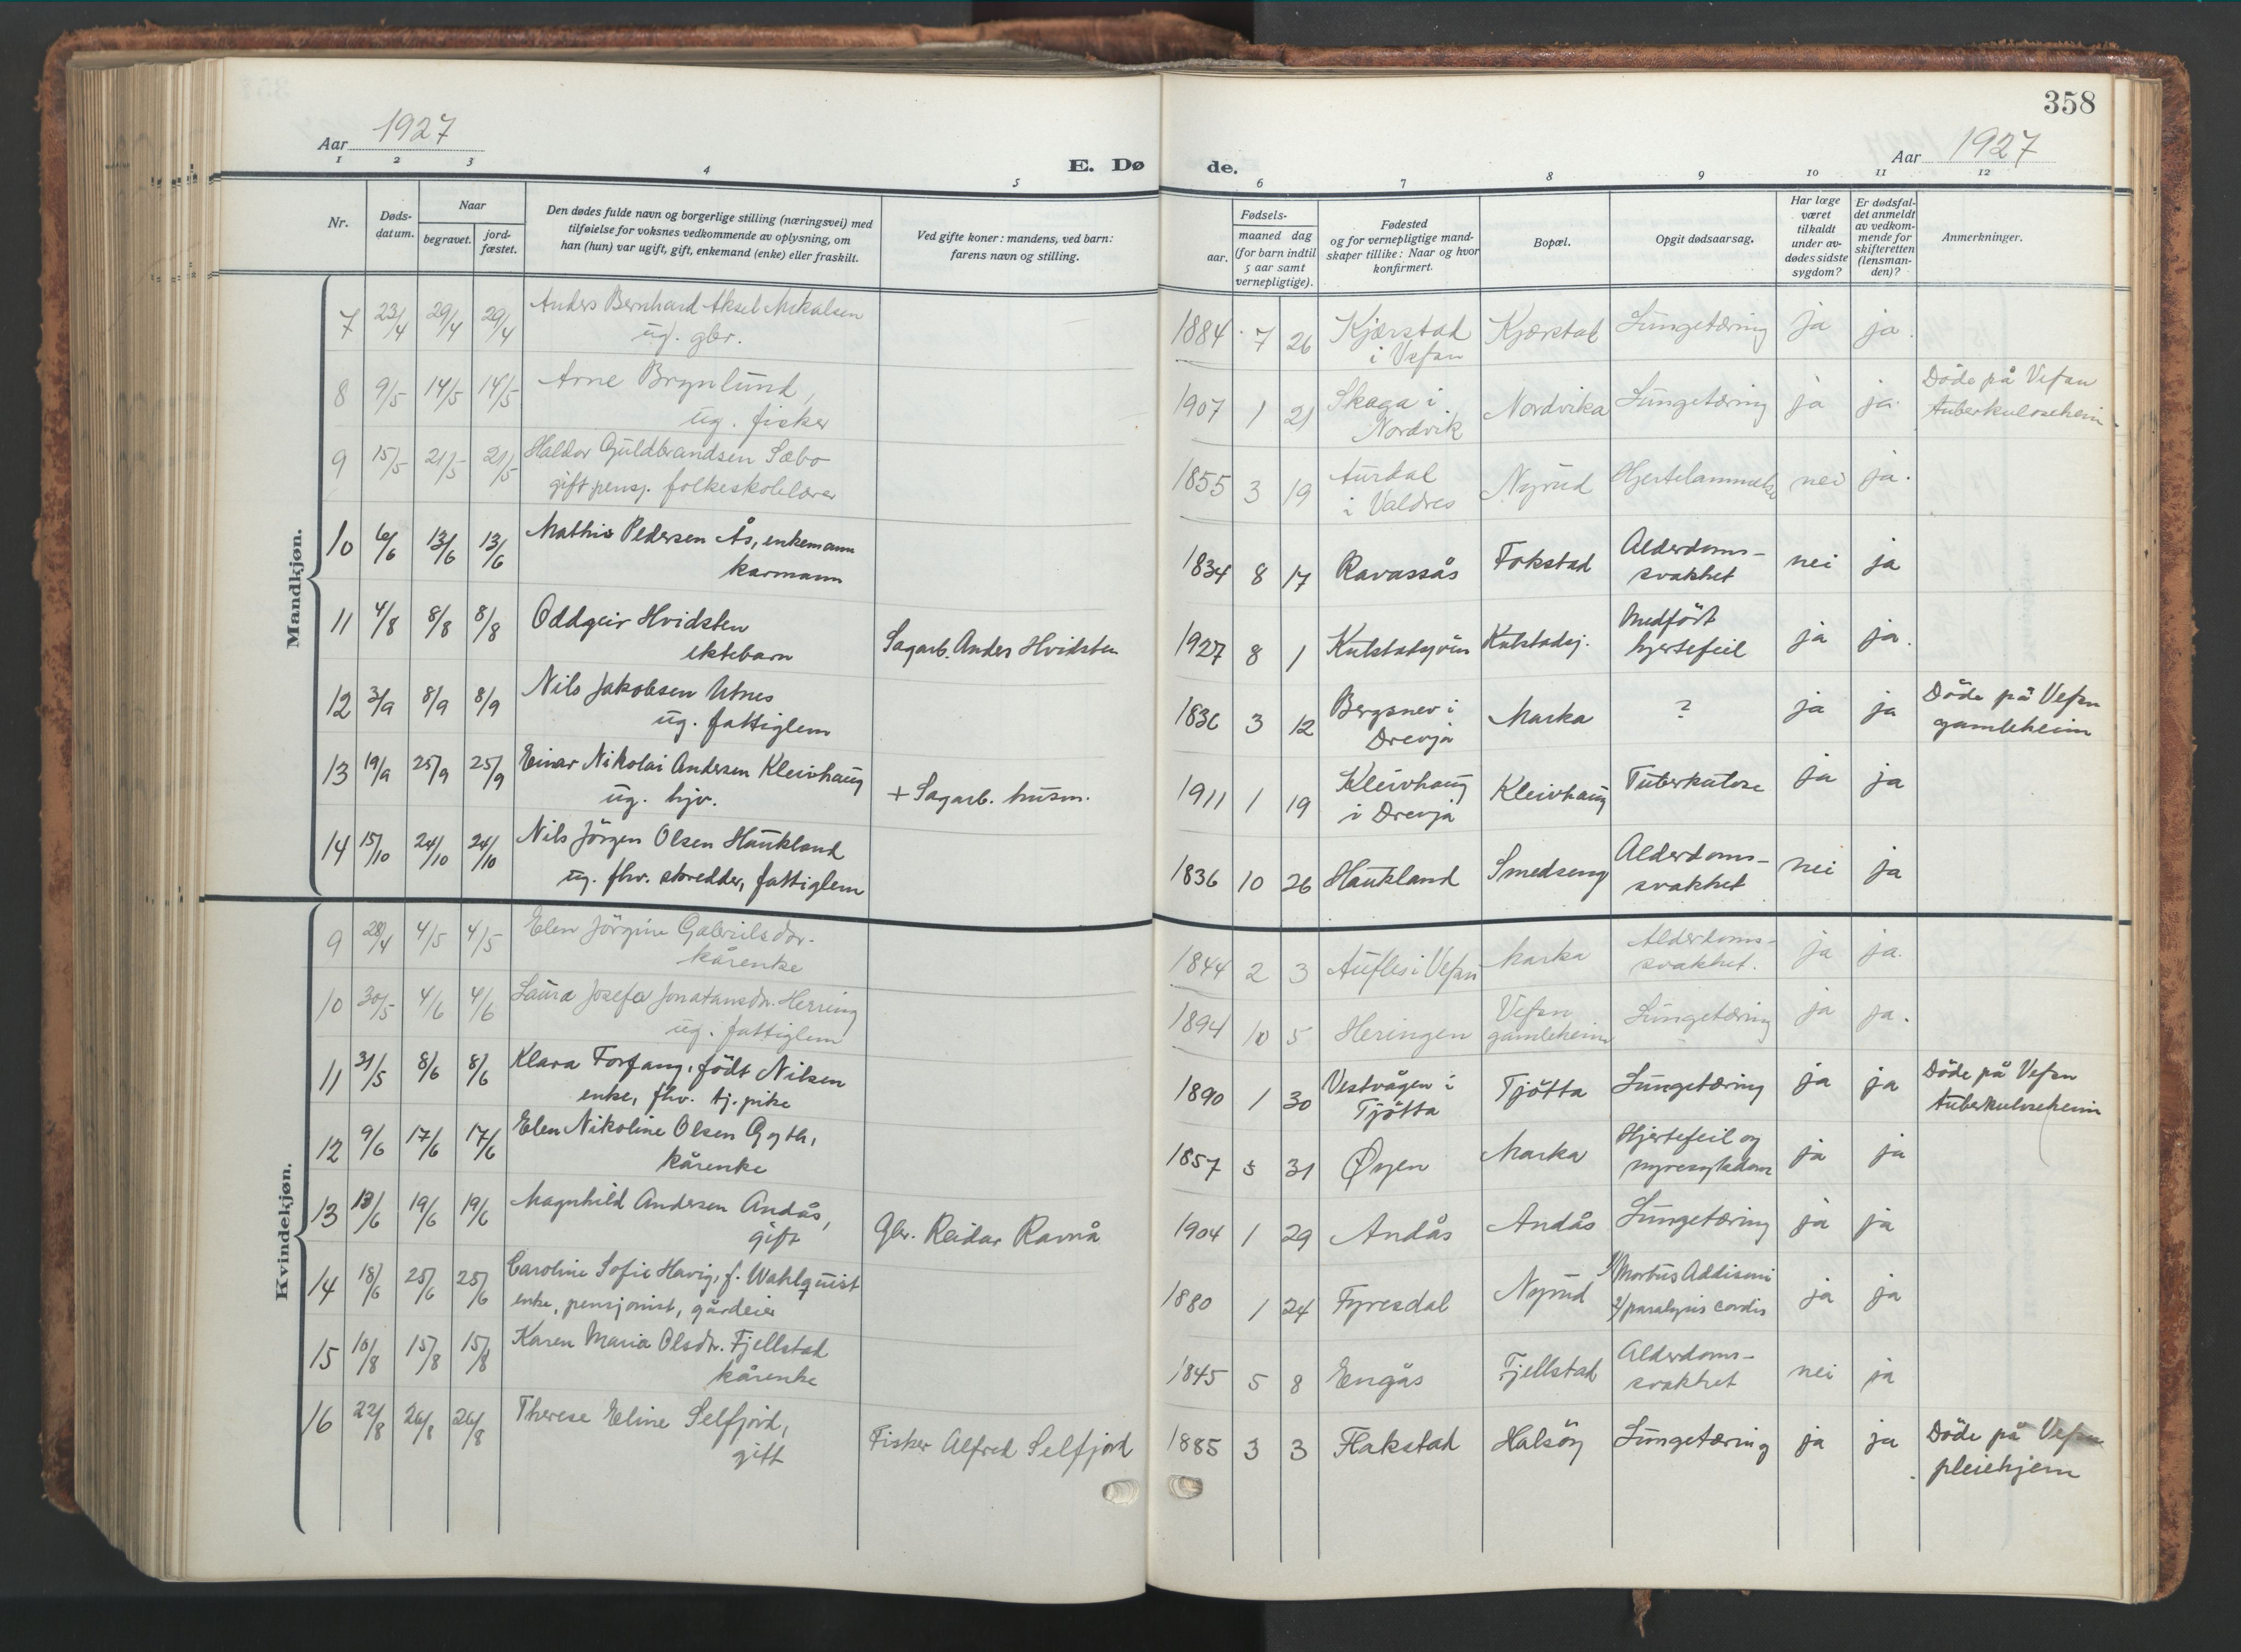 358
Aar 1927
E. Dø de.
Aar 1927
1 2 3 4 5 6 7 8 9 10 11 12
Nr.
Døds-datum.
Naar
begravet.
jord-fæstet.
Den dødes fulde navn og borgerlige stilling (næringsvei) med
tilføielse for voksnes vedkommende av oplysning, om
han (hun) var ugift, gift, enkemand (enke) eller fraskilt.
Ved gifte koner: mandens, ved barn:
farens navn og stilling.
Fødsels-
aar.
maaned dag
(for barn indtil
5 aar samt
vernepligtige).
Fødested
og for vernepligtige mand-
skaper tillike: Naar og hvor
konfirmert.
Bopæl.
Opgit dødsaarsag.
Har læge
været
tilkaldt
under av-
dødes sidste
sygdom?
Er dødsfal-
det anmeldt
av vedkom-
mende for
skifteretten
(lensman-
den)?
Anmerkninger.
Mandkjøn.
7 23/4 29/4 29/4 Anders Bernhard Aksel Mikalsen
ug. gbr.
1884 7 26 Kjærstad
i Vefsn
Kjærstad Lungetæring ja ja.
8 9/5 14/5 14/5 Arne Brynlund,
ug. fisker
1907 1 21 Skaga i
Nordvik
Nordvika Lungetæring ja ja.
Döde på Vefsn
tuberkuloseheim
9 15/5 21/5 21/5 Haldor Guldbrandsen Sæbo
gift pensj. folkeskolelærer
1855 3 19 Aurdal
i Valdres
Nyrud Hjertelammelse nei ja.
10 6/6 13/6 13/6 Mathis Pedersen Ås, enkemann
karmann
1834 8 17 Ravassås Fokstad Alderdoms-
svakhet
nei ja
11 4/8 8/8 8/8 Oddgeir Hvidsten
ektebarn
Sagarb. Anders Hvidsten
1927 8 1 Kulstadsjöen Kulstadsj. Medfört
hjertefeil
ja ja.
12 3/9 8/9 8/9 Nils Jakobsen Utnes
ug. fattiglem
1836 3 12 Bergsnev i
Drevja
Marka ? ja ja
Döde på Vefsn
gamleheim
13 19/9 25/9 25/9 Einar Nikolai Andersen Kleivhaug
ug. hjv.
+ Sagarb. husm.
1911 1 19 Kleivhaug
i Drevja
Kleivhaug Tuberkulose ja ja
14 15/10 24/10 24/10 Nils Jörgen Olsen Haukland
ug. fhv. skredder, fattiglem
1836 10 26 Haukland Smedseng Alderdoms-
svakhet
nei ja
Kvindekjøn.
9 28/4 4/5 4/5 Elen Jörgine Gabrielsdtr.
kårenke
1844 2 3 Aufles i Vefsn Marka Alderdoms-
svakhet.
ja ja.
10 30/5 4/6 4/6 Laura Josefa Jonatansdtr. Herring
ug. fattiglem
1894 10 5 Heringen Vefsn
gamleheim
Lungetæring ja ja.
11 31/5 8/6 8/6 Klara Forfang, födt Nilsen
enke, fhv. tj.pike
1890 1 30 Vestvågen i
Tjötta
Tjötta Lungetæring ja ja
Döde på Vefsn
tuberkuloseheim
12 9/6 17/6 17/6 Elen Nikoline Olsen Gyth,
kårenke
1857 5 31 Øyen Marka Hjertefeil og
nyresykdom
ja ja
13 13/6 19/6 19/6 Magnhild Andersen Andås,
gift
Gbr. Reidar Ravnå
1904 1 29 Andås Andås Lungetæring ja ja
14 18/6 25/6 25/6 Caroline Sofie Havig, f. Wahlquist
enke, pensjonist, gårdeier
1880 1 24 Fyresdal Nyrud 1/ Morbus Addisoni
2/ paralysis cordis
ja ja
15 10/8 15/8 15/8 Karen Maria Olsdtr. Fjellstad
kårenke
1845 5 8 Engås Fjellstad Alderdoms-
svakhet
nei ja
16 22/8 26/8 26/8 Therese Eline Selfjord,
gift
Fisker Alfred Selfjord
1885 3 3 Flakstad Halsöy Lungetæring ja ja
Döde på Vefsn
pleiehjem